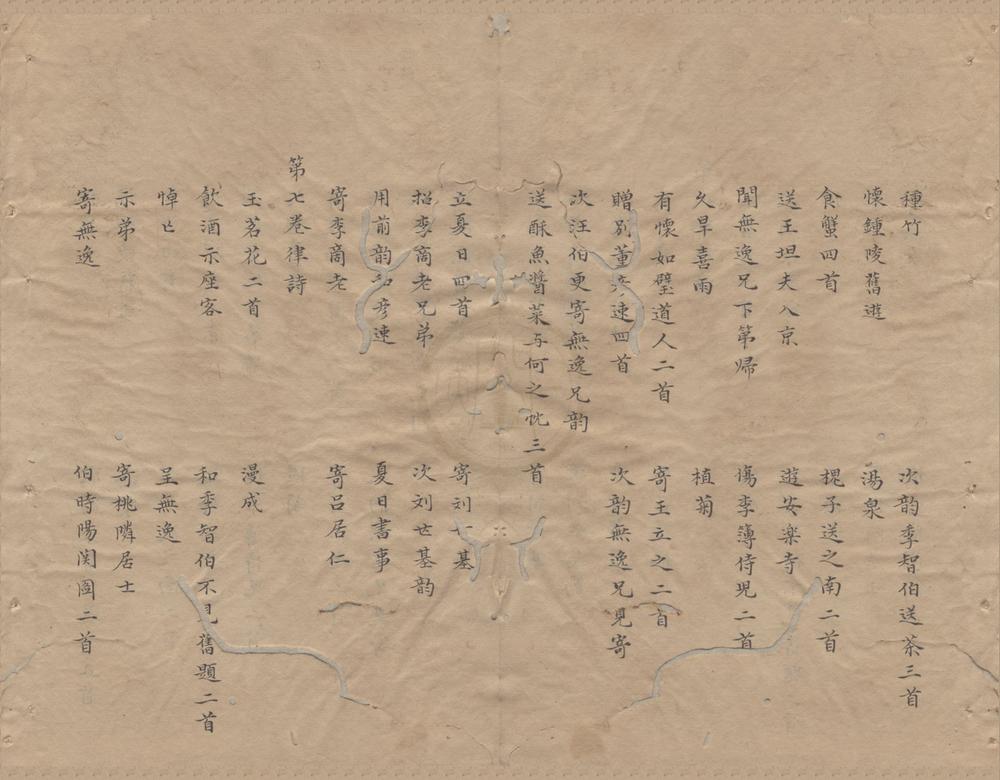 種竹　次韵季智伯送茶三首
懷鍾陵舊遊　湯泉
食蟹四首　槐子送之南二首
送王坦夫入京　遊安楽寺
聞無逸兄下第帰　傷李簿侍児二首
久旱喜雨　植菊
有懐如璧道人二首　寄王立之二首
贈別董彦速四首　次韵無逸兄見寄
次汪伯更寄無逸兄韵
送酥魚醬菜与何之忱三首
立夏日四首　寄刘基
招李商老兄弟　次刘世基韵
用前韵彦速　夏日書事
寄李商老　寄呂居仁
第七卷律詩
玉茗花二首　漫成
飲酒示座客　和季智伯不見舊題二首
悼亡　呈無逸
示弟　寄桃隣居士
寄無逸　伯時陽関圖二首